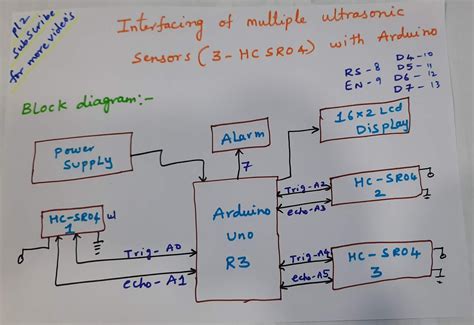 Plz
Subscribe
for more video's
Interfacing of multiple ultrasonic
Sensors (3-HC SR04) with Arduino
RS - 8
EN - 9
D4 - 10
D5 - 11
D6 - 12
D7 - 13
Block diagram:-
Power
Supply
Alarm
7
16x2 Lcd
Display
HC-SR04
1
Arduino
uno
R3
Trig-A2
echo-A3
HC-SR04
2
Trig-A0
echo-A1
Trig-A4
echo-A5
HC-SR04
3